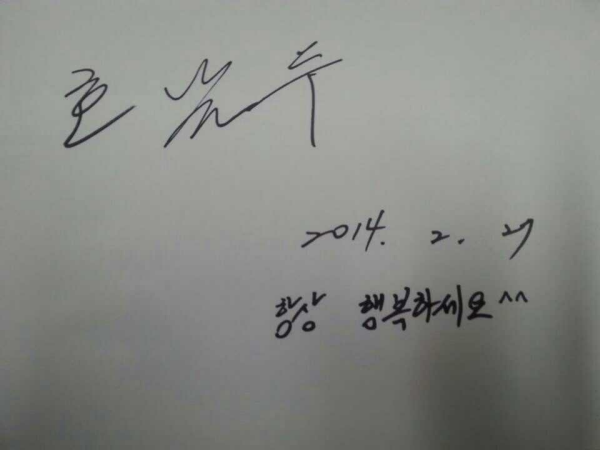 2014. 2. 27
항상 행복하세요^^